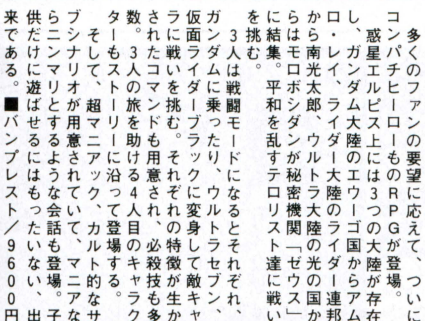 多くのファンの要望に応えて、ついに
コンパチヒーローものRPGが登場。
惑星エルピス上には3つの大陸が存在
し、ガンダム大陸のエウーゴ国からアム
ロ・レイ、ライダー大陸のライダー連邦
から南光太郎、ウルトラ大陸の光の国か
らはモロボシダンが秘密機関「ゼウス」
に結集。平和を乱すテロリスト達に戦い
を挑む。
3人は戦闘モードになるとそれぞれ、
ガンダムに乗ったり、ウルトラセブン、
仮面ライダーブラックに変身して敵キャ
ラに戦いを挑む。それぞれの特徴が生か
されたコマンドも用意され、必殺技も多
数。3人の旅を助ける4人目のキャラク
ターもストーリーに沿って登場する。
そして、超マニアック、カルト的なサ
ブシナリオが用意されていて、マニアな
らニンマリとするような会話も登場。子
供だけに遊ばせるにはもったいない、出
来である。■バンプレスト/9600円